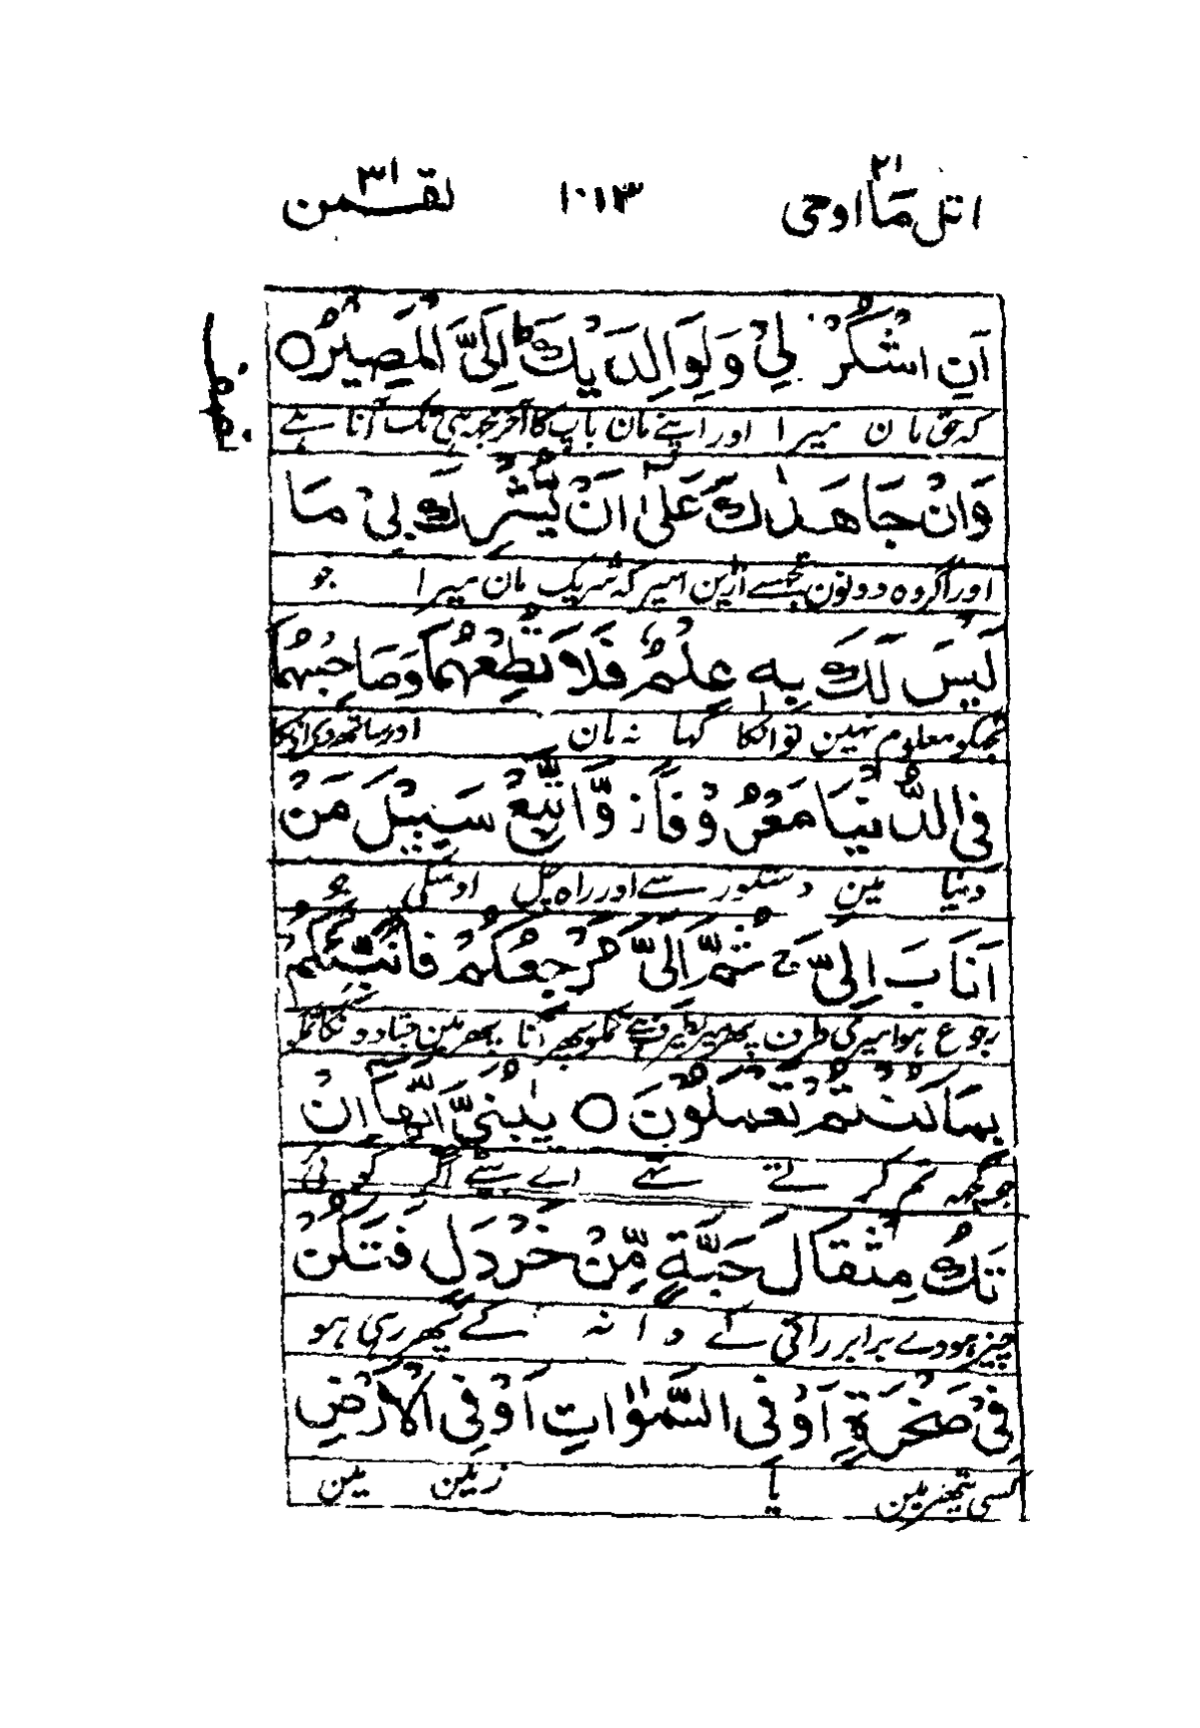 اتل ما اوحی ۲۱ ۱۰۱۳ لقمن ۳۱
اَنِ اشْكُرْ لِیْ وَلِوَالِدَیْكَ ؕ اِلَیَّ الْمَصِیْرُ ○
کہ حق مان میرا اور اپنے مان باپ کا آخر مجھ ہی تک آنا ہے
وَاِنْ جَاهَدٰكَ عَلٰۤی اَنْ تُشْرِكَ بِیْ مَا
اور اگر وہ دونون تجھسے اڑین اسپر کہ شریک مان میرا جو
لَیْسَ لَكَ بِهٖ عِلْمٌ فَلَا تُطِعْهُمَا وَصَاحِبْهُمَا
تجھکو معلوم نہین تو انکا کہا نہ مان اور ساتھ دی انکا
فِی الدُّنْیَا مَعْرُوْفًا ز وَّاتَّبِعْ سَبِیْلَ مَنْ
دنیا مین دستور سے اور راہ چل اوسکی جو
اَنَابَ اِلَیَّ ۚ ثُمَّ اِلَیَّ مَرْجِعُكُمْ فَاُنَبِّئُكُمْ
رجوع ہوا میری طرف پھر میریطرف ہے تمکو پھر آنا پھر مین جتادونگا تمکو
بِمَا كُنْتُمْ تَعْمَلُوْنَ ○ یٰبُنَیَّ اِنَّهَاۤ اِنْ
جو کچھ تم کرتے تھے اے بیٹے اگر کوئی
تَكُ مِثْقَالَ حَبَّةٍ مِّنْ خَرْدَلٍ فَتَكُنْ
چیز ہووے برابر رائی کے دانہ کے پھر رہی ہو
فِیْ صَخْرَةٍ اَوْ فِی السَّمٰوٰاتِ اَوْ فِی الْاَرْضِ
کسی پتھر مین یا زمین مین